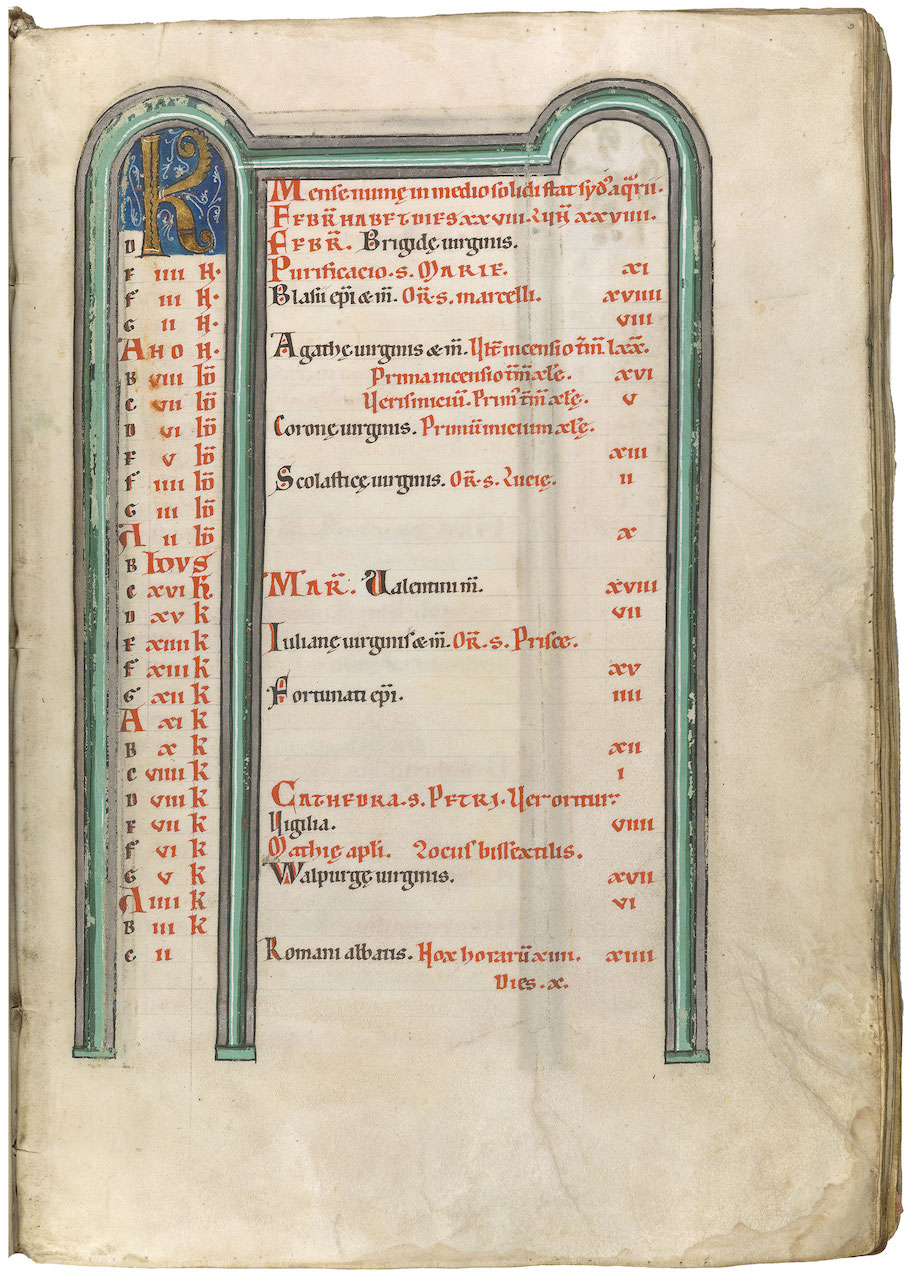 K
Mense numę in medio solidi stat syd' aq̄rii.
FEBR̄ HABET DIES XXVIII. LVN̄ XXVIIII.
D FEBR̄. Brigidę uirginis.
E IIII N. Purificacio. s. MARIE. XI
F III N. Blasii ep̄i & m̄. Or̄. s. marcelli. XVIIII
G II N. VIII
A NO N. Agathę uirginis & m̄. Vlt' incensio t'm̄ lxx̄.
B VIII ID Prima incensio t'm̄ xl'ę. XVI
C VII ID Veris iniciū. Prim' t'm̄ xl'ę. V
D VI ID Coronę uirginis. Primū inicium xl'ę.
E V ID XIII
F IIII ID Scolasticę uirginis. Or̄. s. Lucię. II
G III ID
A II ID X
B IDVS
C XVI K MAR̄. Valentini m̄. XVIII
D XV K VII
E XIIII K Iulianę uirginis & m̄. Or̄. s. Priscę.
F XIII K XV
G XII K Fortunati ep̄i. IIII
A XI K
B X K XII
C VIIII K I
D VIII K CATHEDRA. s. PETRI. Ver oritur.
E VII K Vigilia. VIIII
F VI K Mathię apl̄i. Locus bissextilis.
G V K Walpurgę uirginis. XVII
A IIII K VI
B III K
C II Romani abbatis. Nox horarū XIIII. XIIII
Dies. X.